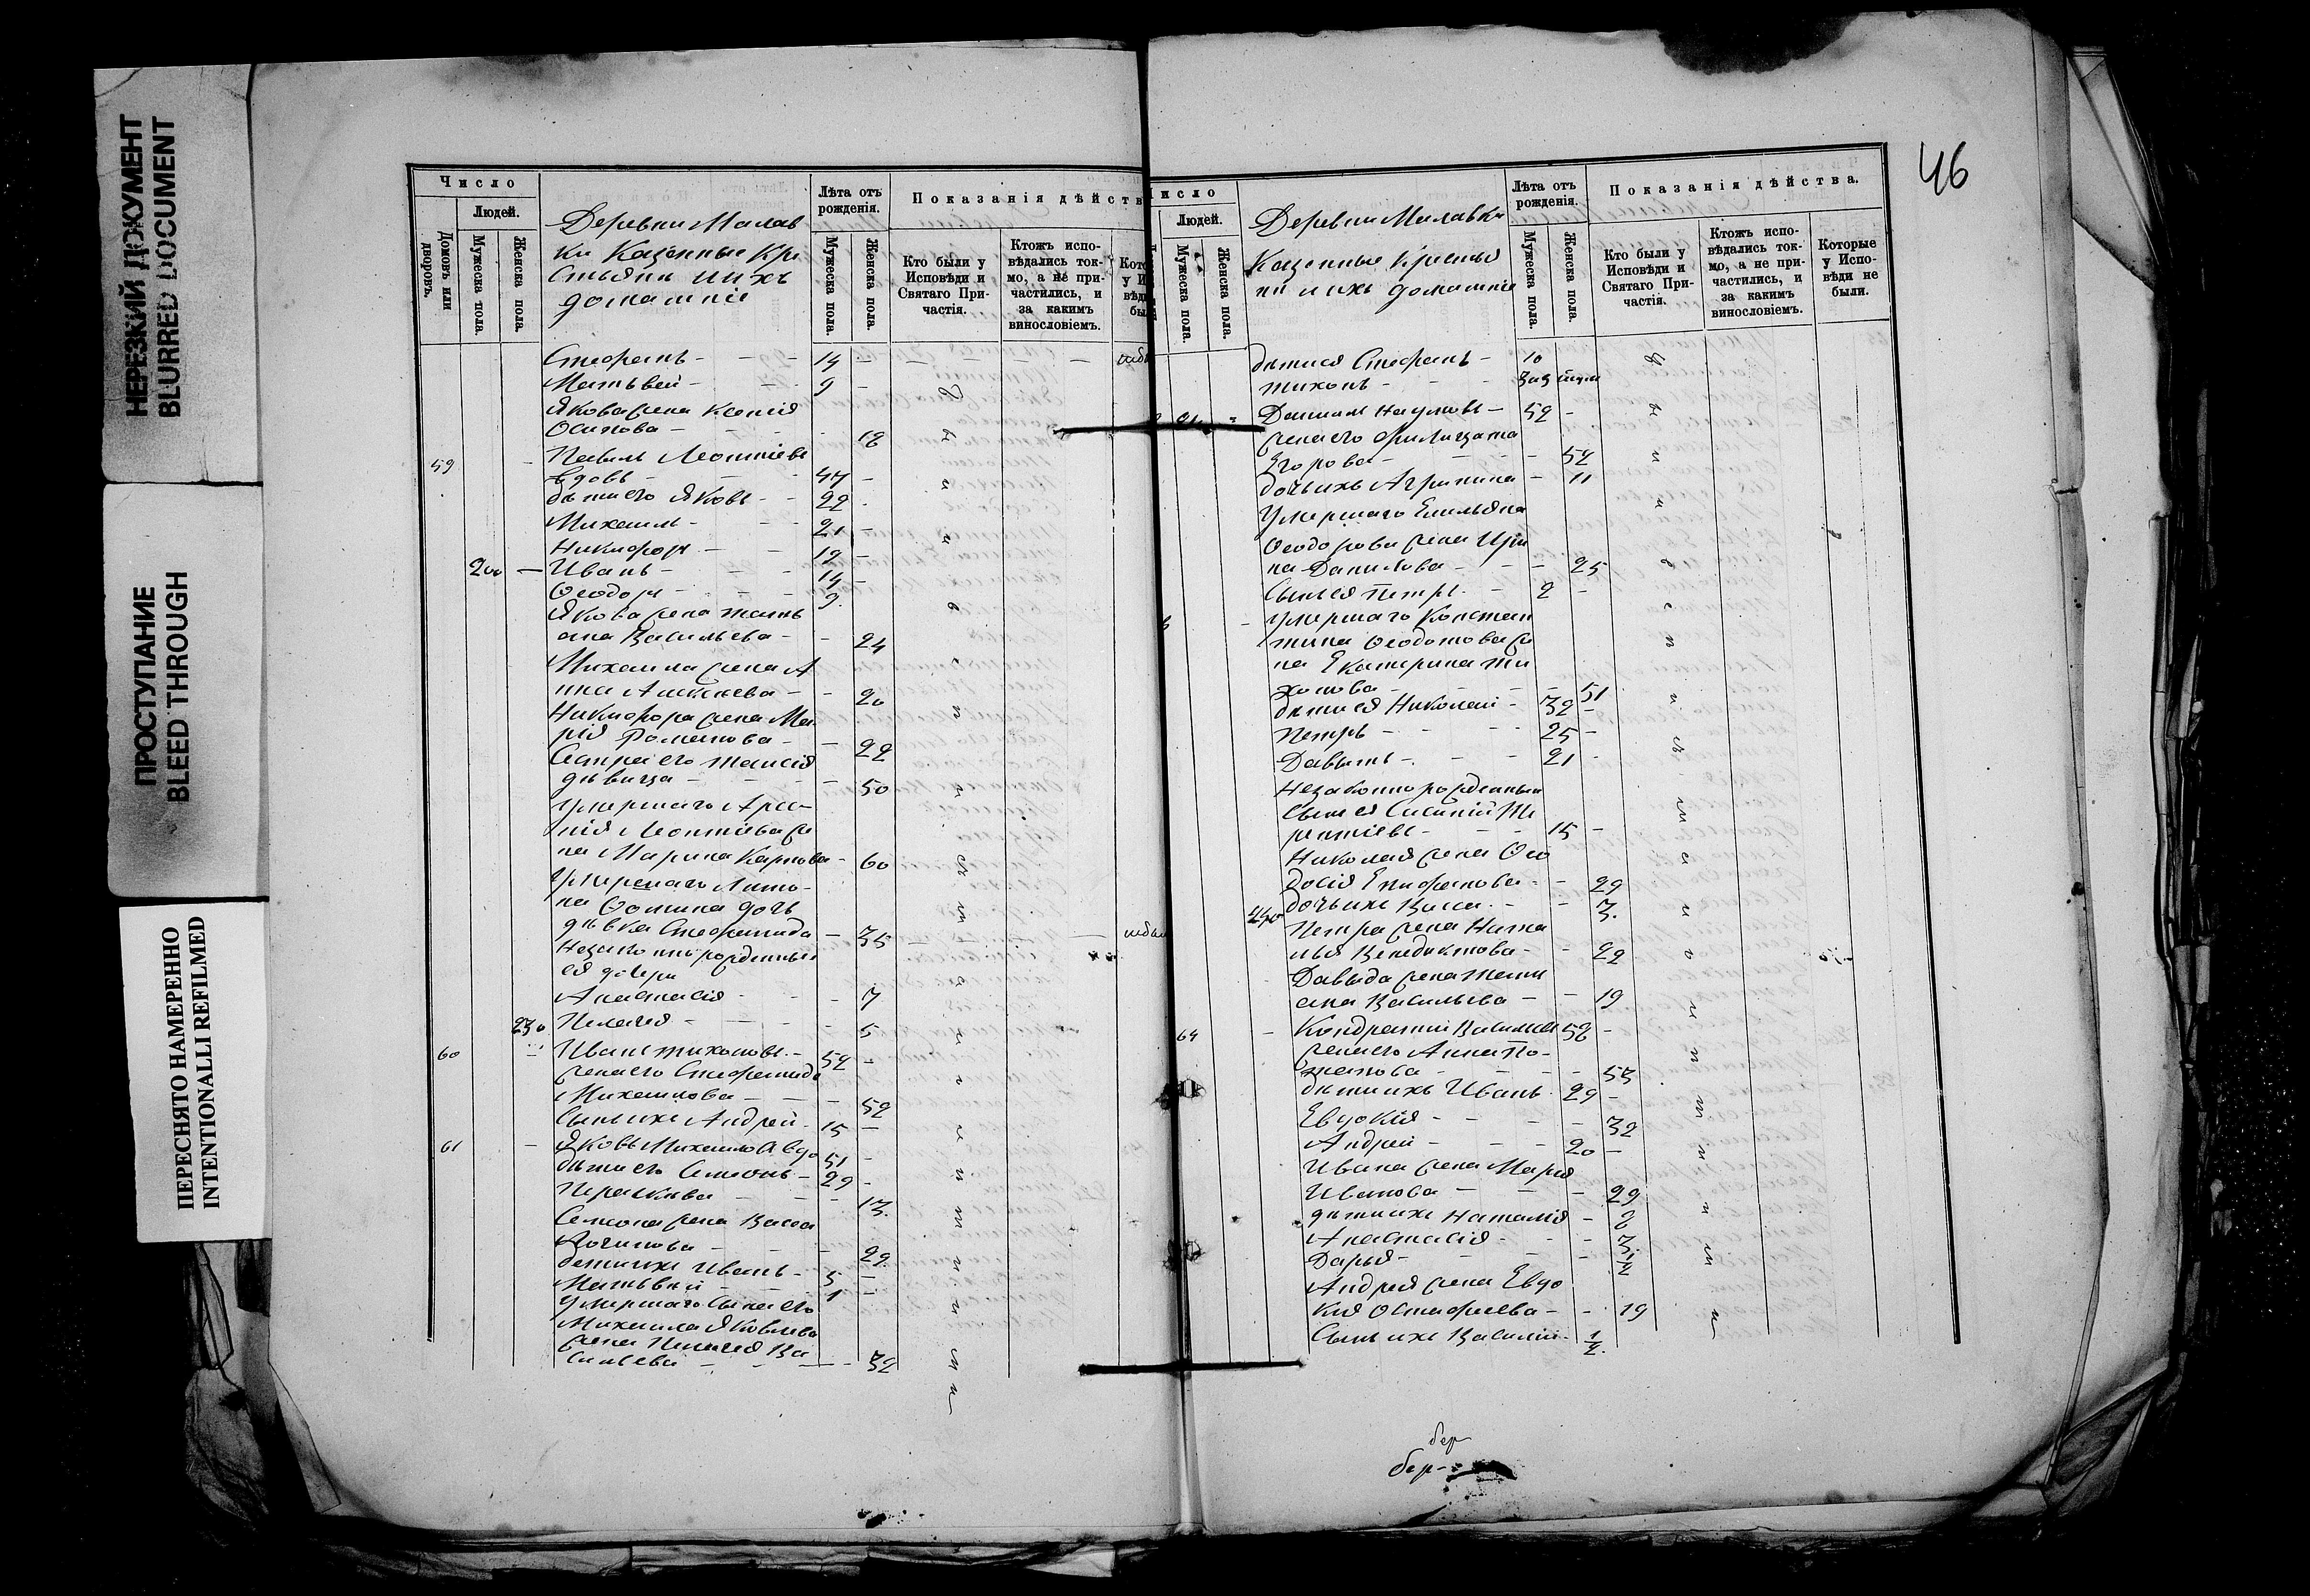 НЕРЕЗКИЙ ДОКУМЕНТ
BLURRED DOCUMENT
ПРОСТУПАНИЕ
BLEED THROUGH
ПЕРЕСНЯТО НАМЕРЕННО
INTENTIONALLI REFILMED
Число
Людей.
Домовъ или дворовъ.
Мужеска пола.
Женска пола.
Деревни Милав
ки Казенные Кре
стьяни и ихъ
домашніе
Лѣта отъ рожденія.
Мужеска пола.
Женска пола.
Показанія дѣйств
Кто были у Исповѣди и Святаго Причастія.
Ктожъ исповѣдались токмо, а не причастились, и за какимъ винословіемъ.
Стефанъ - 14
Матвей - 9
Якова жена Ксенія
Осипова - 18
59 Павелъ Леонтіевъ
вдовъ - 47
дѣти его Яковъ - 22
Михаилъ - 21
Никифоръ - 19
200 Иванъ - 14
Ѳеодоръ - 9
Якова жена Тать
яна Васильева - 24
Михаила жена А
нна Алексѣева - 20
Никифора жена Ма
рія Романова - 22
Сестра его Таисія
дѣвица - 50
умершаго Арсе-
нія Леонтіева же
на Марина Карпова - 60
Умершаго
на Ѳомина дочь
дѣвка Стефанида - 35
Незаконнорожденныя
ея дочери
Анастасія - 7
230 Пелагея - 5
60 Иванъ Тихоновъ - 52
жена его Стефанида
Михаилова - 52
Сынъ ихъ Андрей - 15
61 Яковъ Михаилов вдо 51
дѣти его Семенъ - 29
Параскева - 13
Семена жена Васса
Логинова - 29
дети ихъ Иванъ - 5
Матвѣй - 1
умершаго сына его
Михаила Яковлева
жена Пелагея Ва
сильева - 32
46
Число
Людей.
Мужеска пола.
Женска пола.
Деревни Милавки
Казенные Крестья
ни и ихъ домашніе
Лѣта отъ рожденія.
Мужеска пола.
Женска пола.
Показанія дѣйства.
Кто были у Исповѣди и Святаго Причастія.
Ктожъ исповѣдались токмо, а не причастились, и за какимъ винословіемъ.
Которые у Исповѣди не были.
дѣти ея Стефанъ - 10
Тихонъ -
Даниилъ Наумовъ - 52
жена его Филицата
Егорова - 52
дочь ихъ Агрипина - 11
Умершаго Емильяна
Ѳеодорова жена Ири
на Данилова - 25
Сынъ ея Петръ - 2
умершаго Констан
тина Ѳеодотова же
на Екатерина Ти
хонова - 51
дѣти ея Николай - 32
Петръ - 25
Давыдъ - 21
Незаконнорожденный
сынъ ея Сисиній Те
рентіевъ - 15
Николая жена Ѳео
досія Епифанова - 29
дочь ихъ Васса - 3
Петра жена Ната
лья Венедиктова - 22
Давыда жена Тати
ана Васильева - 19
64 Кондратій Васильев 58
жена его Анна По-
тапова - 53
дѣти ихъ Иванъ - 29
Евдокія - 32
Андрей - 20
Ивана жена Марія
Иванова - 29
дѣти ихъ Наталія - 8
Анастасія - 3
Дарья - 1/2
Андрея жена Евдо
кия Остафиева - 19
Сынъ ихъ Василій 1/2
бер
бер-